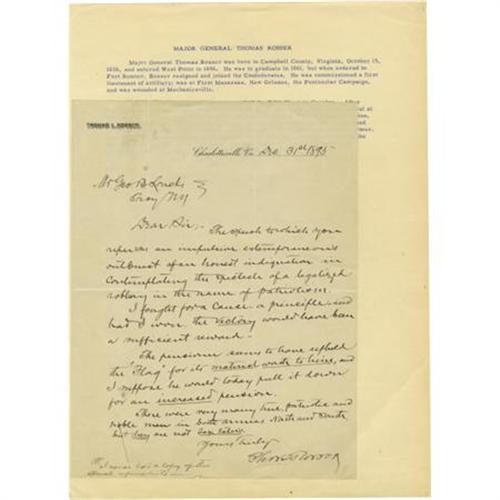 MAJOR GENERAL THOMAS ROSSER
Major General Thomas Rosser was born in Campbell County, Virginia, October 15,
1836, and entered West Point in 1856. He was to graduate in 1861, but when ordered to
Fort Sumter, Rosser resigned and joined the Confederates. He was commissioned a first
lieutenant of artillery; was at First Manassas, New Orleans, the Peninsular Campaign,
and was wounded at Mechanicsville.
THOMAS L. ROSSER.
Charlottesville, Va. Dec 31st 1895
Mr Geo B
Troy NY
Dear Sir:-
The speech to which you
refer was an impulsive extemporaneous
outburst of an honest indignation in
Contemplating the spectacle of a legalized
robbery in the name of patriotism.
I fought for a cause - a principle - and
had I won the victory would have been
a sufficient reward.
The pensioner seems to have upheld
the "Flag" for its material waste to hire, and
I suppose he would today pull it down
for an increased pension.
There were very many true, patriotic and
noble men in both armies North and South,
but they are not
Yours truly
Thos L Rosser
a copy of the